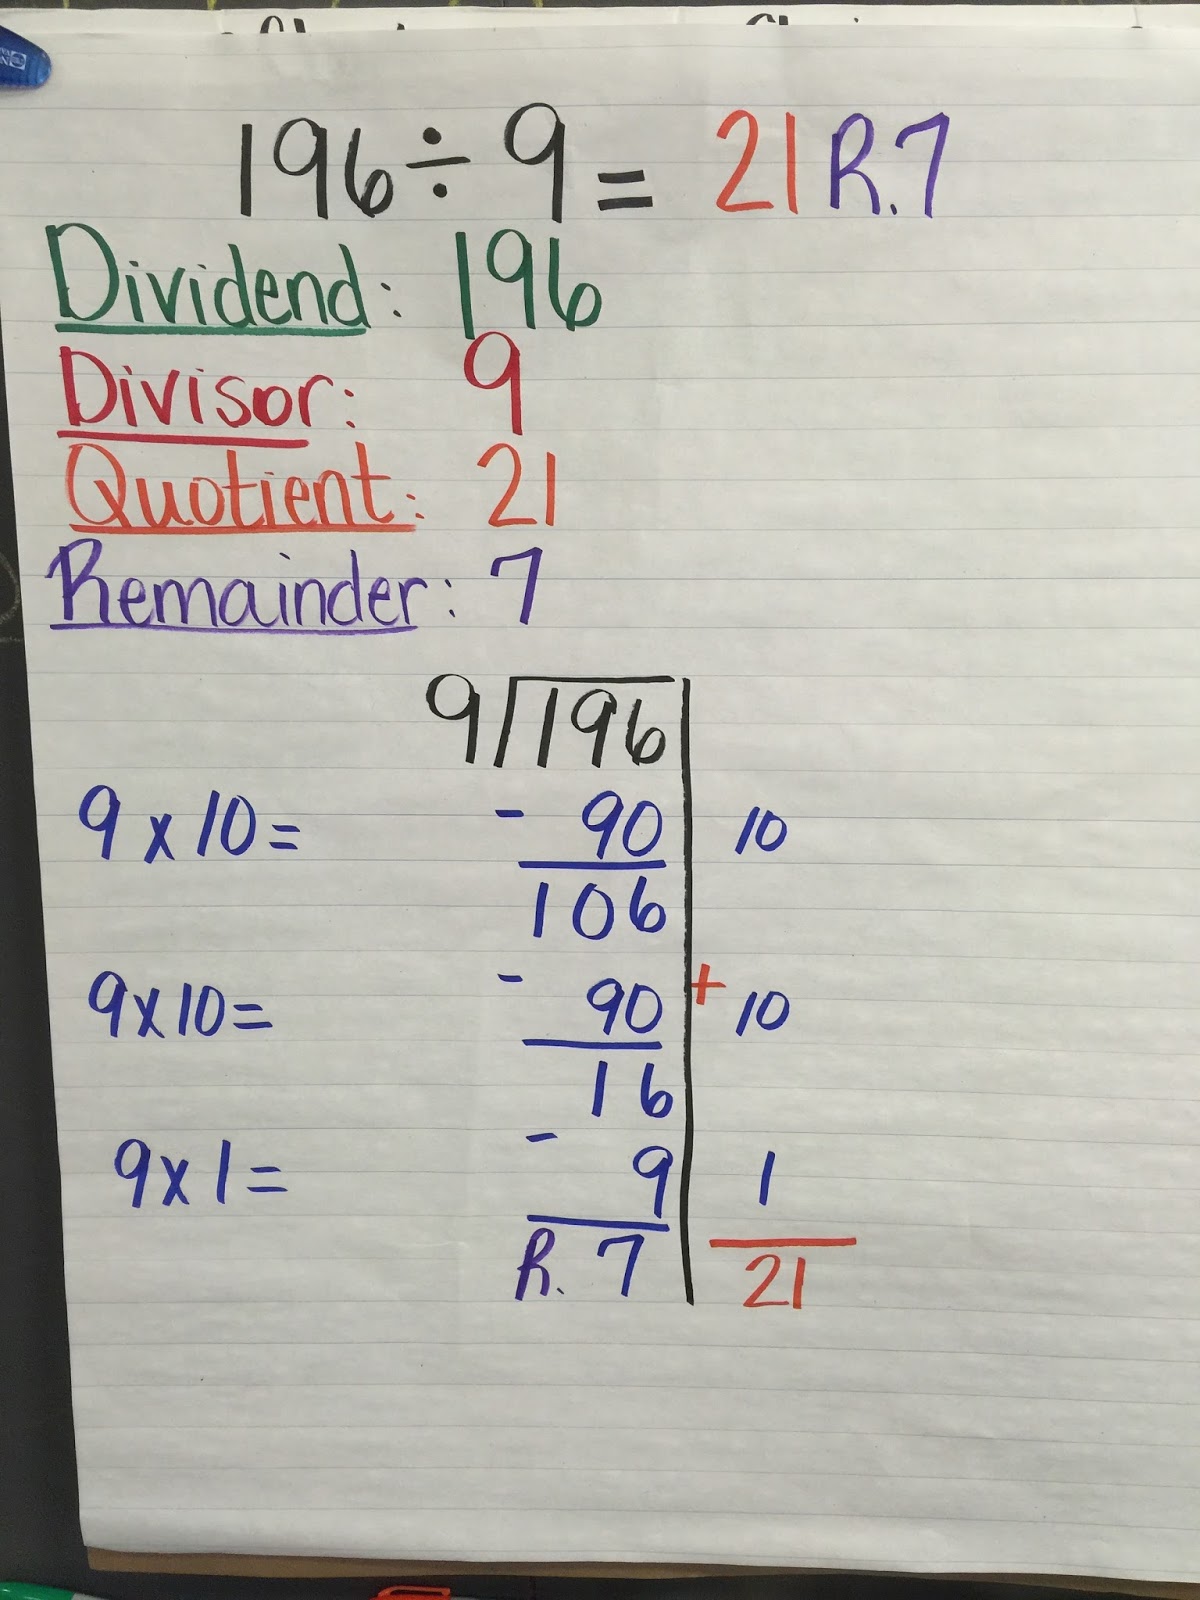 196 ÷ 9 = 21 R.7
Dividend: 196
Divisor: 9
Quotient: 21
Remainder: 7
9 196
9 x 10 = - 90 10
106
9 x 10 = - 90 + 10
16
9 x 1 = - 9 1
R. 7 21